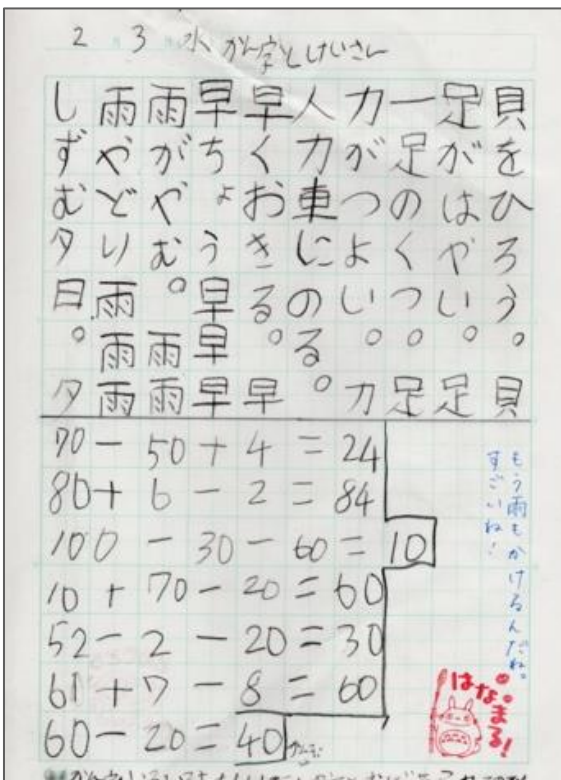 2 3 水 かん字とけいさん
貝をひろう。 貝
足がはやい。足
一足のくつ。足
力がつよい。力
人力車にのる。
早くおきる。早
早ちょう早早早
雨がやむ。雨雨
雨やどり雨雨雨
しずむ夕日。夕
70-50+4=24
80+6-2=84
100-30-60=10
10+70-20=60
52-2-20=30
61+7-8=60
60-20=40
もう雨もかけるんだね。
すごいね!
はなまる!